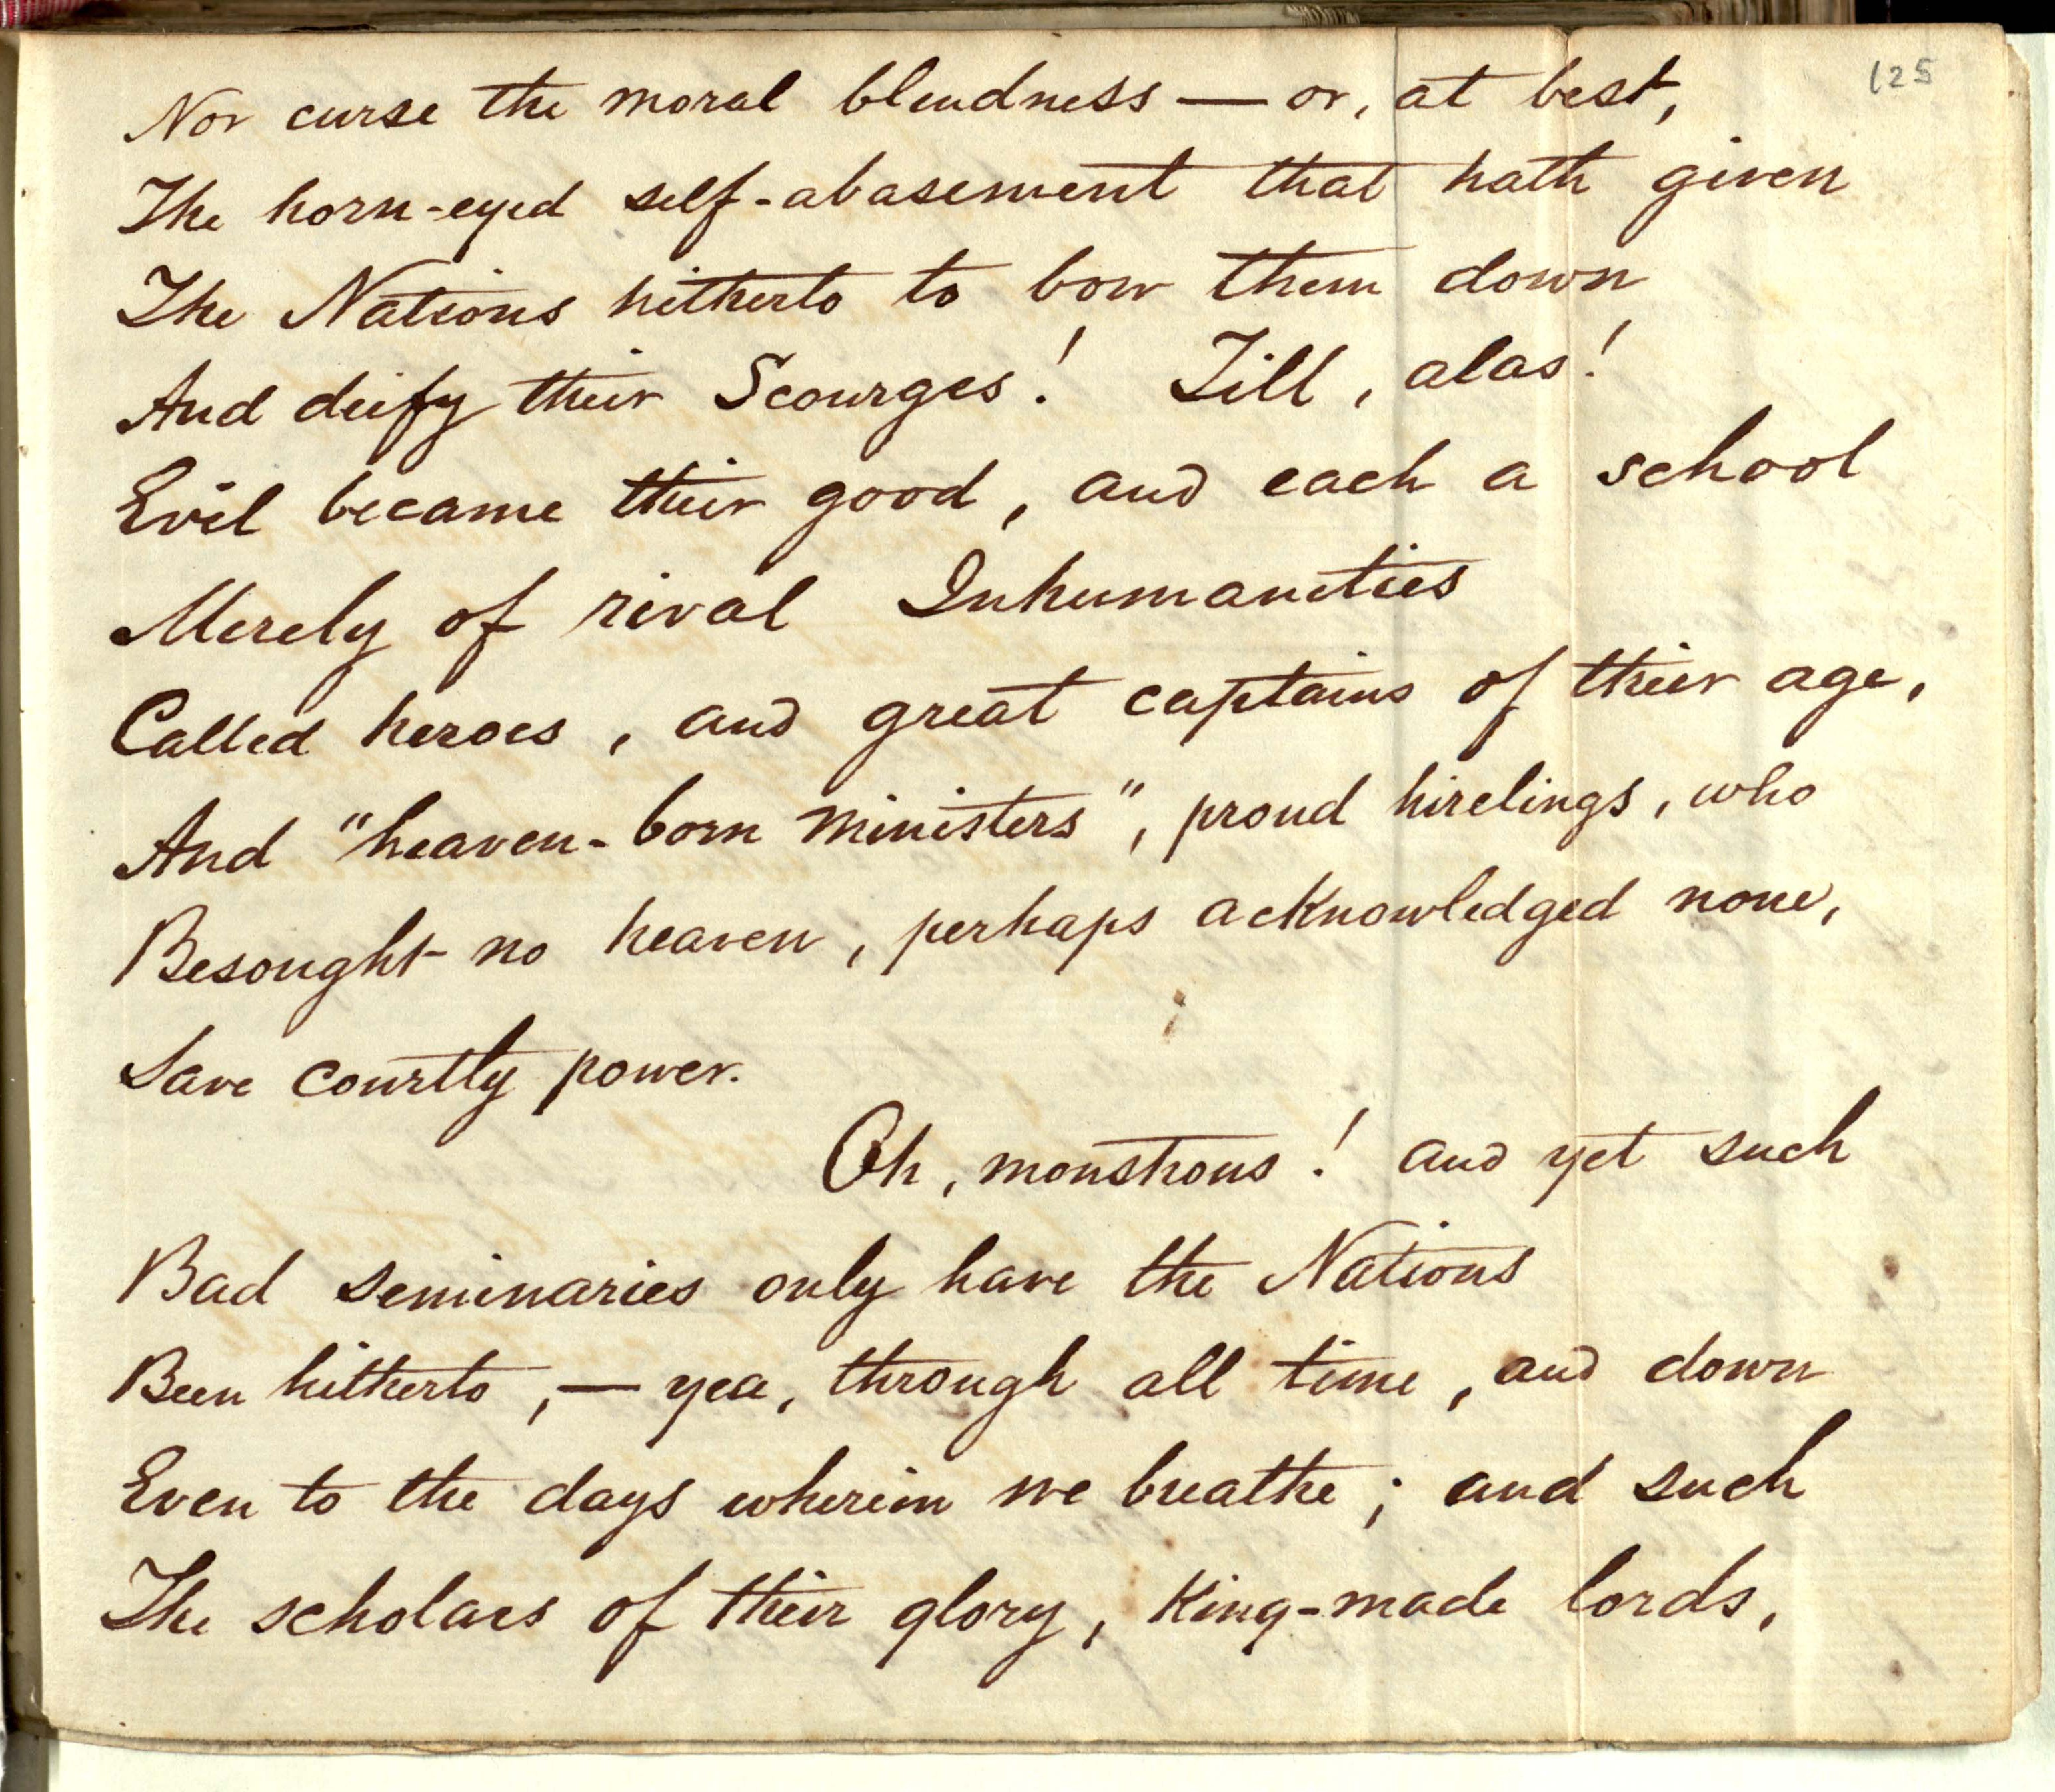 125
Nor curse the moral blindness — or, at best,
The horn-eyed self-abasement that hath given
The Nations hitherto to bow them down
And deify their Scourges! Till, alas!
Evil became their good, and each a school
Merely of rival Inhumanities
Called heroes, and great captains of their age,
And "heaven-born ministers", proud hirelings, who
Besought no heaven, perhaps acknowledged none,
Save courtly power.
Oh, monstrous! and yet such
Bad seminaries only have the Nations
Been hitherto, — yea, through all time, and down
Even to the days wherein we breathe; and such
The scholars of their glory, King-made lords,